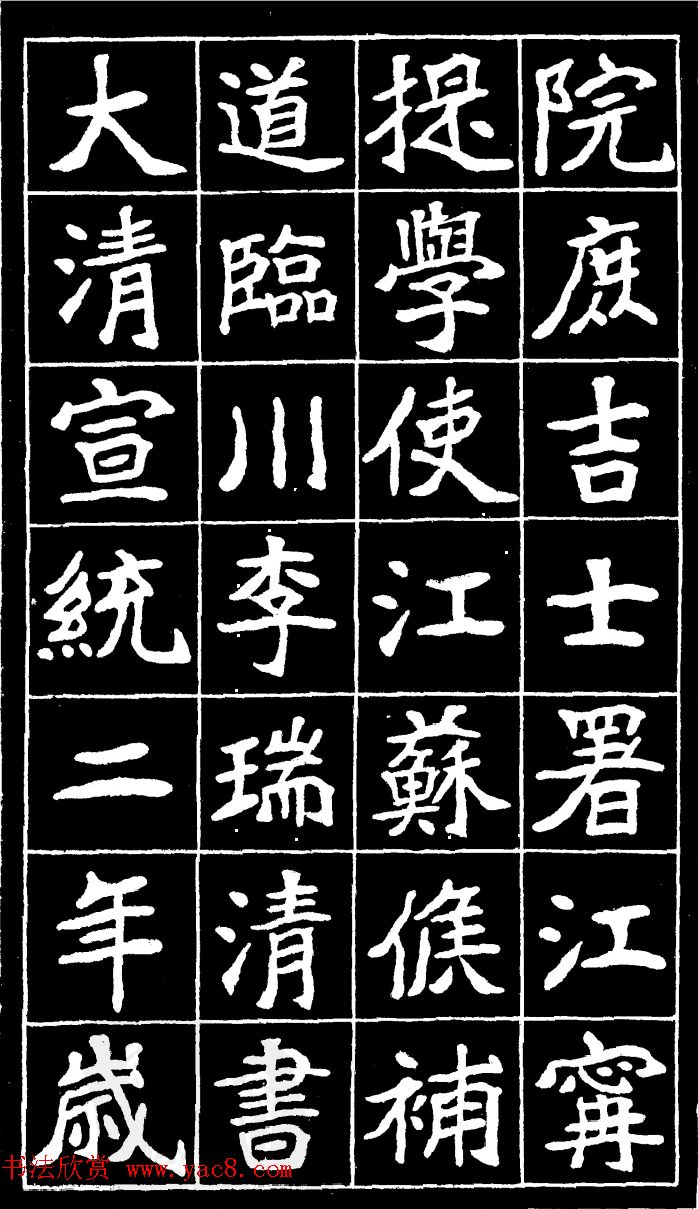 院庶吉士署江寧
提學使江蘇候補
道臨川李瑞清書
大清宣統二年歳
书法欣赏 www.yac8.com